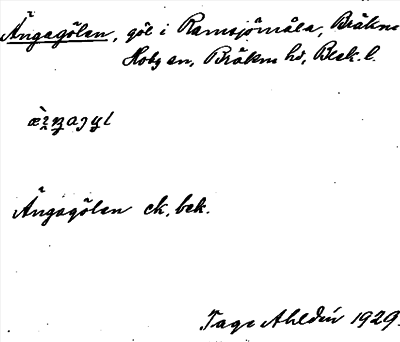 Ängagölen, göl i Ramsjömåla, Bräkne
Hoby sn, Bräkne hd, Blek. l.
Ängagölen ek. bek.
Tage Ahldén 1929.